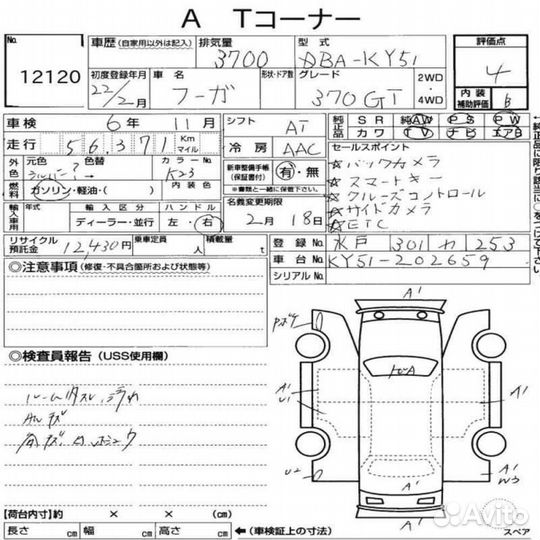 A Tコーナー
No. 12120
車歴 (自家用以外は記入) 排気量 3700 型式 DBA-KY51 評価点 4
初度登録年月 22/2月 車名 フーガ 形状・ドア数 グレード 370GT 2WD ・ 4WD 内装補助評価 B
車検 6年 11月 シフト AT 純正品 SR AW PS PW
走行 56,371 Km マイル 冷房 AAC カワ TV ナビ エアB
外色 元色 シルバー? 色替 → カラーNo. K23 新車整備手帳(保証書付) 有・無 セールスポイント
燃料 ガソリン・軽油・( ) 内装色 ※書類と一緒に保管下さい。
☆バックカメラ
☆スマートキー
☆クルーズコントロール
☆サイドカメラ
☆ETC
輸入車用 年式 輸入区分 ディーラー・並行 ハンドル 左・右 名義変更期限 2月 18日
リサイクル預託金 12,430円 乗車定員 人 積載量 t 登録No. 水戸 301 カ 253
車台No. KY51-202659
シリアルNo.
◎注意事項 (修復・不具合箇所および状態等)
◎検査員報告 (USS使用欄)
A1
A1
U1
A1
U2
A1
W3
A1
【荷台内寸】約 × × (cm)
長さ cm 幅 cm 高さ cm ←(車検証上の寸法) スペア
Avito